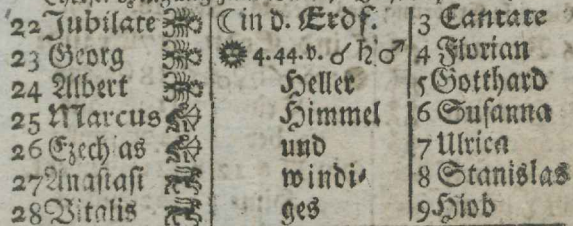 22 Jubilate ☾ in d. Erdf. 3 Cantate
23 Georg 4.44.v. ☌ ♄ ♂ 4 Florian
24 Albert Heller 5 Gotthard
25 Marcus Himmel 6 Susanna
26 Ezechias und 7 Ulrica
27 Anastasi windi⸗ 8 Stanislas
28 Vitalis ges 9 Hiob